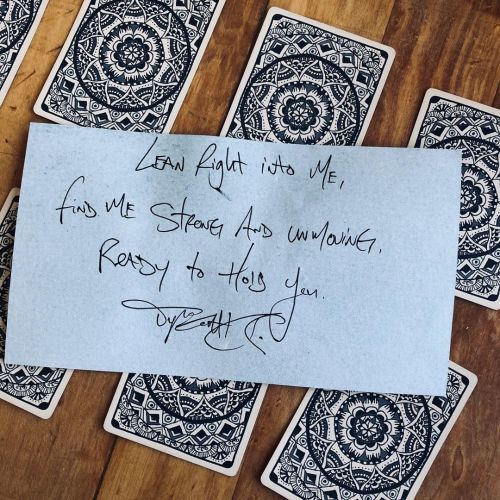 Lean Right into Me,
find me Strong And unmoving,
Ready to Hold you.